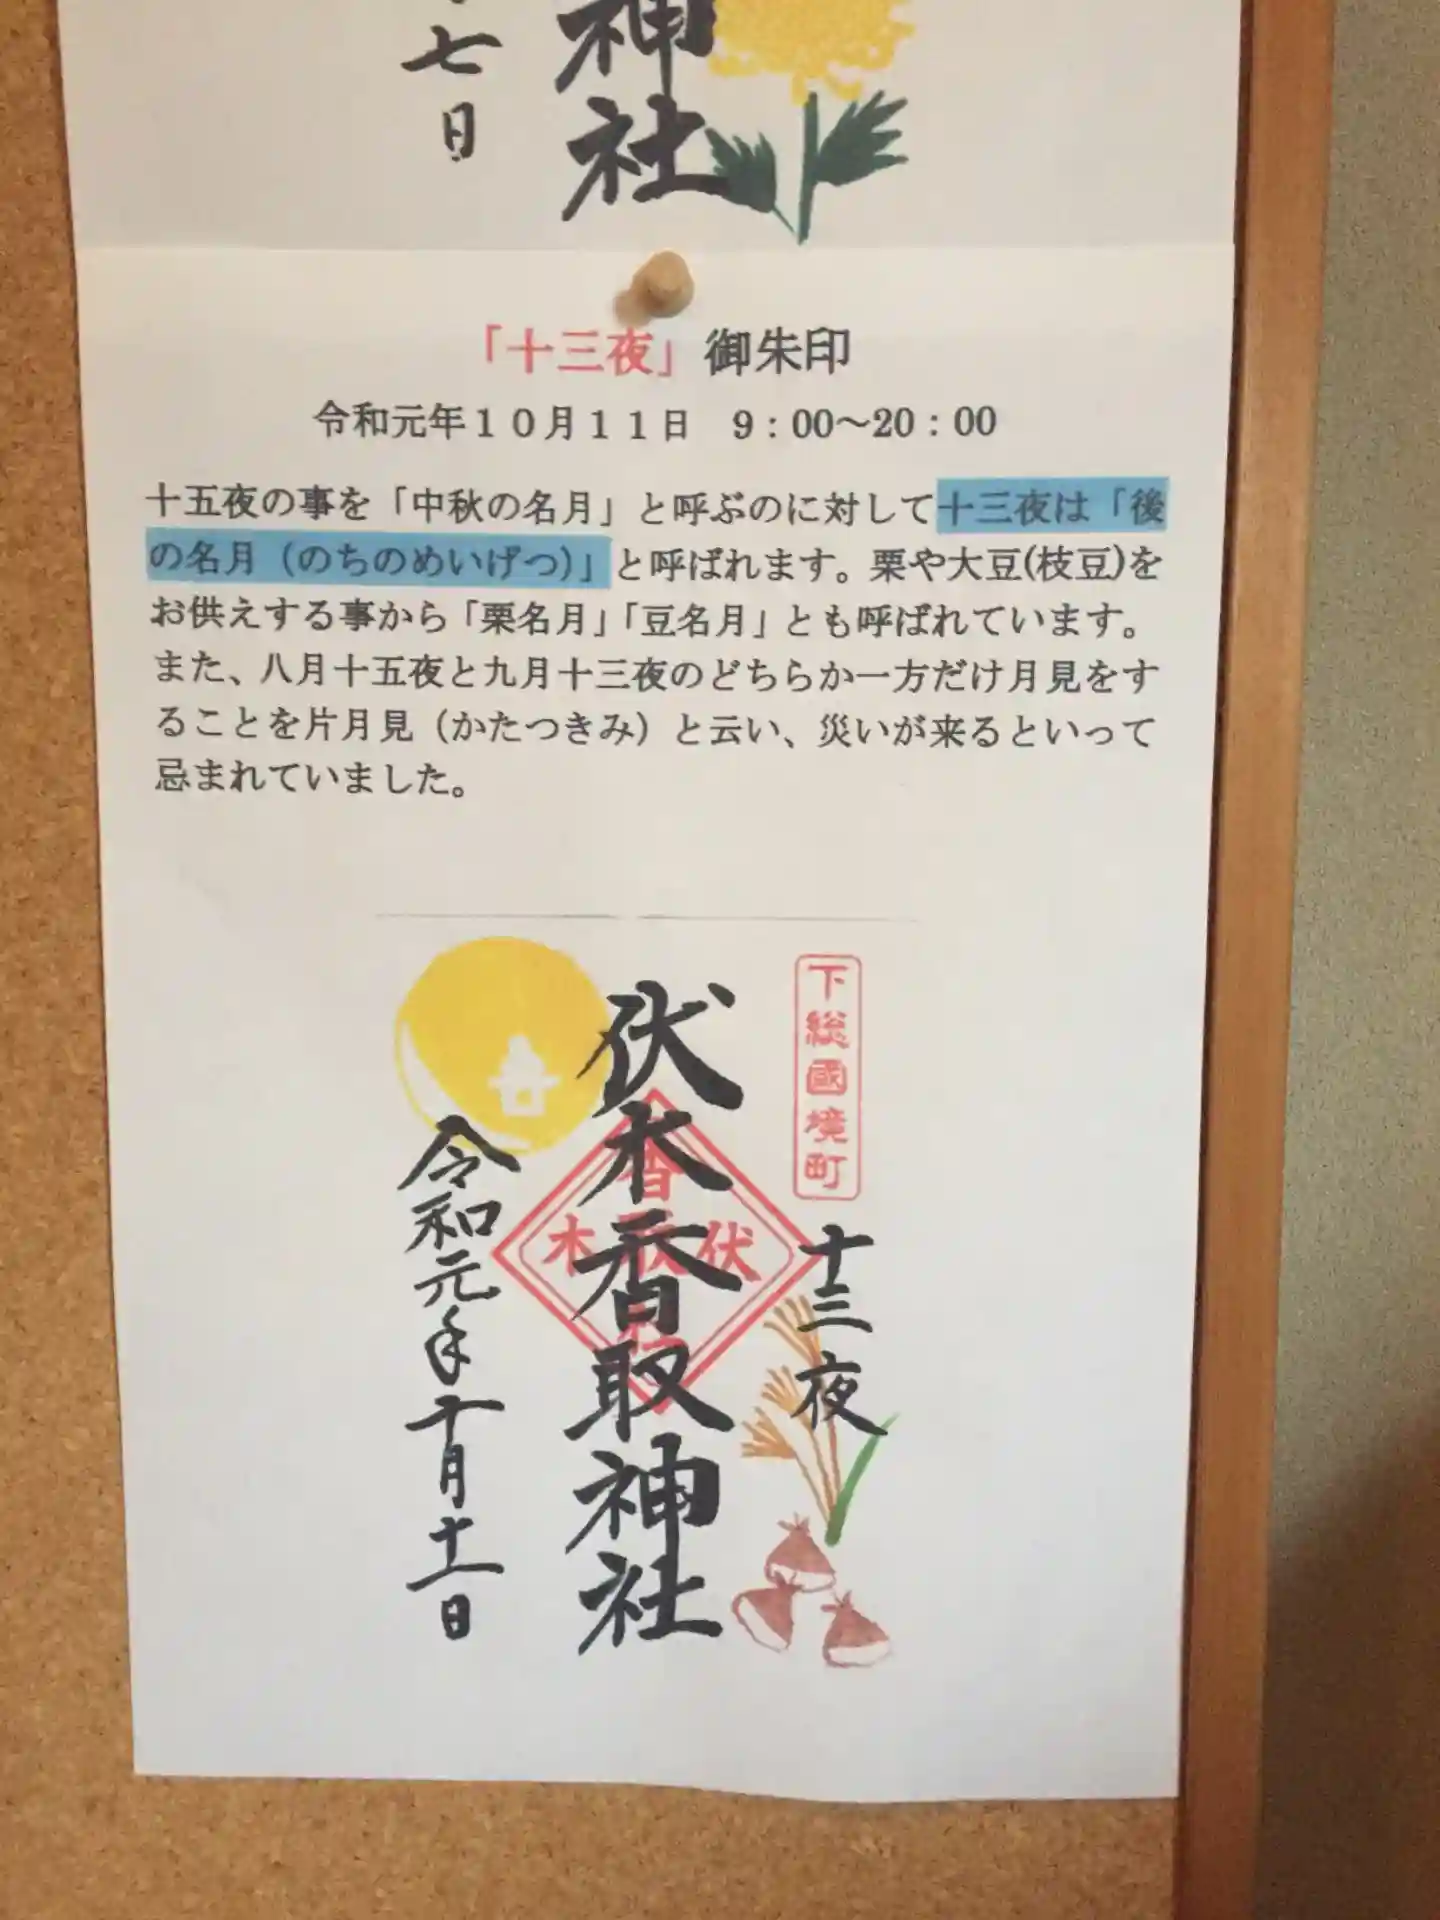 七日
神社
「十三夜」御朱印
令和元年10月11日 9:00～20:00
十五夜の事を「中秋の名月」と呼ぶのに対して十三夜は「後
の名月（のちのめいげつ）」と呼ばれます。栗や大豆(枝豆)を
お供えする事から「栗名月」「豆名月」とも呼ばれています。
また、八月十五夜と九月十三夜のどちらか一方だけ月見をす
ることを片月見（かたつきみ）と云い、災いが来るといって
忌まれていました。
下総國境町
十三夜
伏木香取神社
伏木香取
令和元年十月十一日